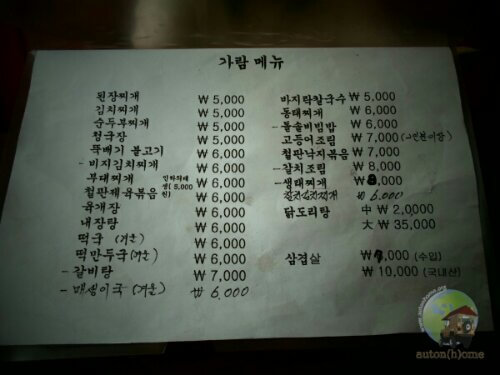 가람 메뉴
된장찌개 ₩ 5,000
김치찌개 ₩ 5,000
순두부찌개 ₩ 5,000
청국장 ₩ 5,000
뚝배기 불고기 ₩ 6,000
- 비지김치찌개 ₩ 6,000
부대찌개 ₩ 6,000
철판제육볶음 ₩ 6,000
육개장 ₩ 6,000
내장탕 ₩ 6,000
떡국 (겨울) ₩ 6,000
떡만두국 (겨울) ₩ 6,000
- 갈비탕 ₩ 7,000
- 매생이국 (겨울) ₩ 6,000
바지락칼국수 ₩ 5,000
동태찌개 ₩ 6,000
- 돌솥비빔밥 ₩ 6,000
고등어조림 ₩ 7,000
철판낙지볶음 ₩ 7,000
- 갈치조림 ₩ 8,000
- 생태찌개 ₩ 8,000
₩ 6,000
닭도리탕 中 ₩ 2,000
大 ₩ 35,000
삼겹살 (수입)
₩ 10,000 (국내산)
auton(h)ome